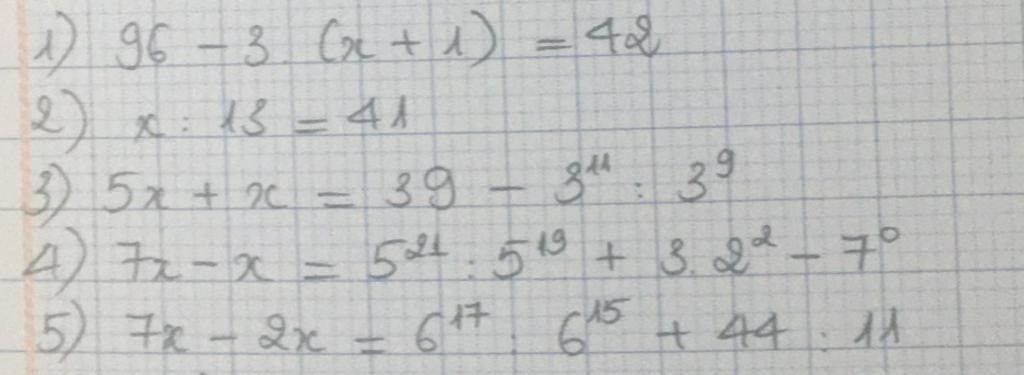 1) 96 - 3 (x + 1) = 42
2) x : 13 = 41
3) 5x + x = 39 - 3¹¹ : 3⁹
4) 7x - x = 5²¹ : 5¹⁹ + 3.2² - 7⁰
5) 7x - 2x = 6¹⁷ : 6¹⁵ + 44 : 11